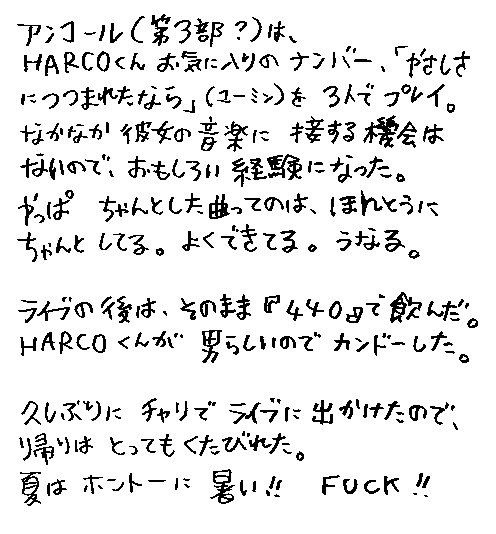 アンコール(第3部?)は、
HARCOくん お気に入りの ナンバー、「やさしさ
につつまれたなら」(ユーミン)を 3人で プレイ。
なかなか 彼女の 音楽に 接する 機会は
ないので、おもしろい 経験になった。
やっぱ ちゃんとした曲ってのは、ほんとうに
ちゃんと してる。よくできてる。うなる。
ライブの 後は、そのまま『440』で 飲んだ。
HARCOくんが 男らしいので カンドーした。
久しぶりに チャリで ライブに 出かけたので、
帰りは とってもくたびれた。
夏は ホントーに 暑い!! FUCK!!